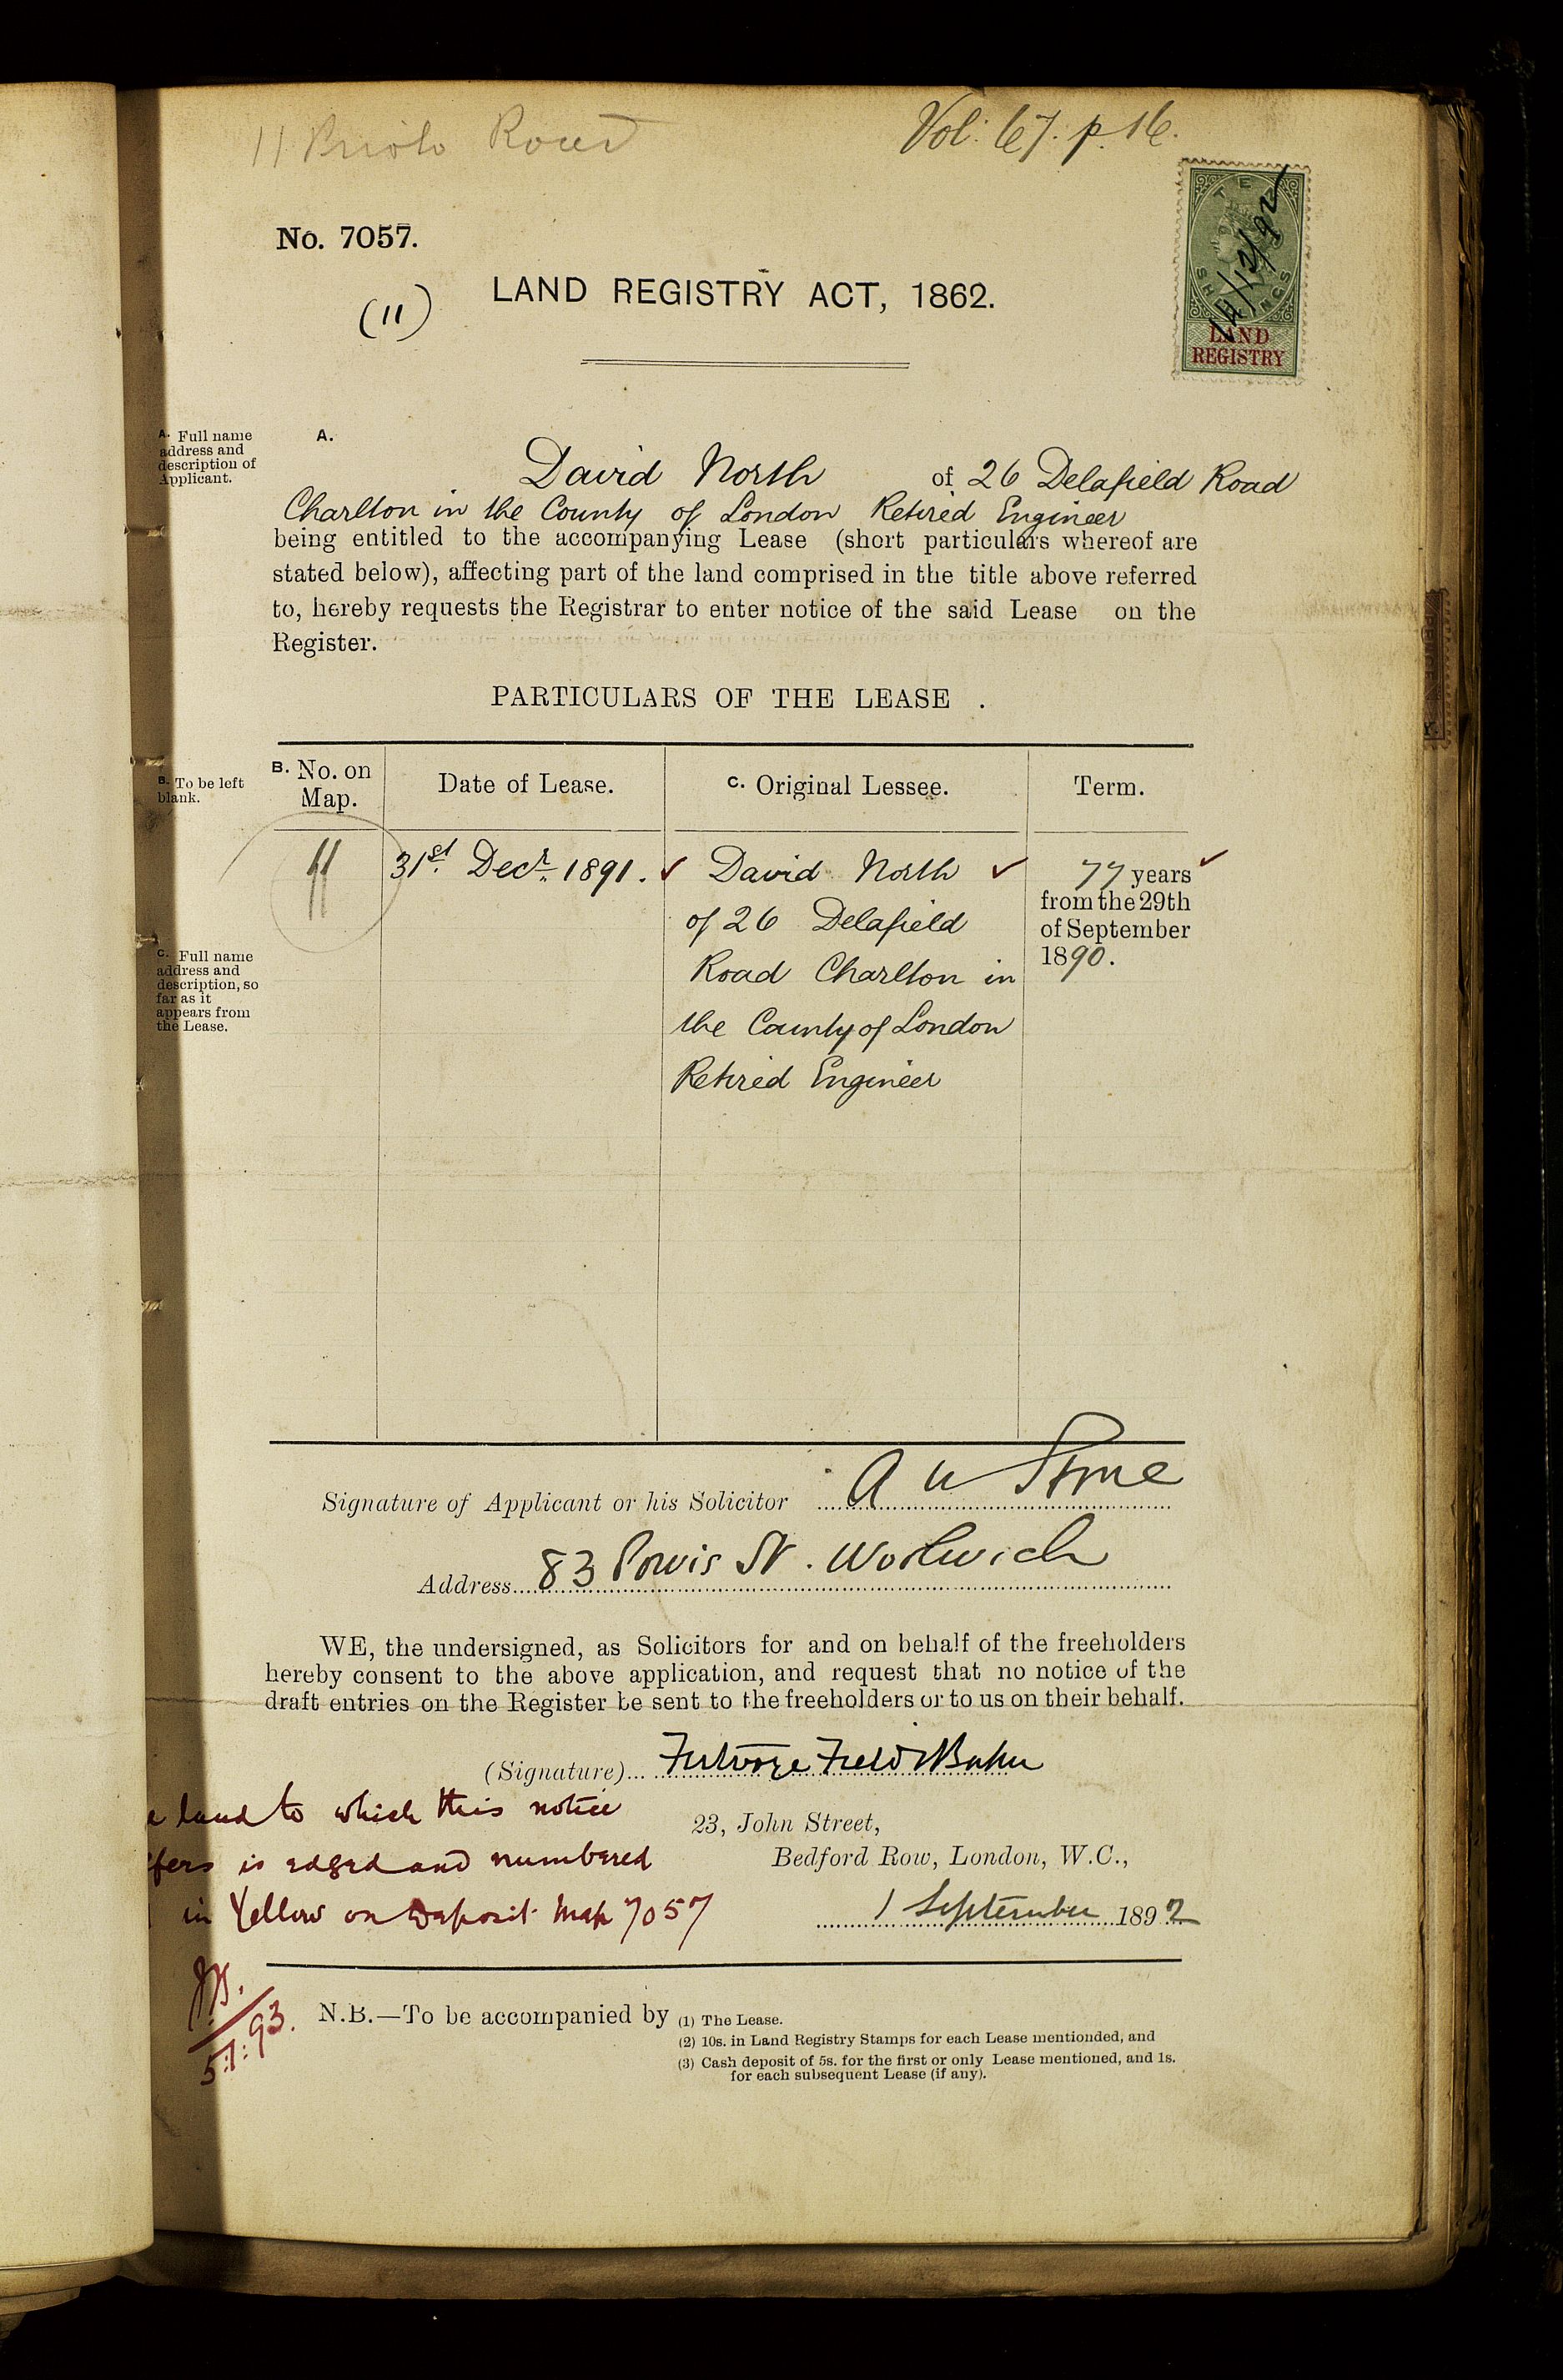 11 Road
Vol: 67. p. 16.
No. 7057.
(11)
LAND REGISTRY ACT, 1862.
TEN
SHILLINGS
14/12/92
LAND
REGISTRY
A. Full name
address and
description of
Applicant.
A.
David North of 26 Delafield Road
Charlton in the County of London Retired Engineer
being entitled to the accompanying Lease (short particulars whereof are
stated below), affecting part of the land comprised in the title above referred
to, hereby requests the Registrar to enter notice of the said Lease on the
Register.
PARTICULARS OF THE LEASE .
B. To be left
blank.
B. No. on
Map.
Date of Lease.
C. Original Lessee.
Term.
11
31st. Decr. 1891.
David North
of 26 Delafield
Road Charlton in
the County of London
Retired Engineer
77 years
from the 29th
of September
1890.
C. Full name
address and
description, so
far as it
appears from
the Lease.
Signature of Applicant or his Solicitor A W Stone
Address 83 Powis St. Woolwich
WE, the undersigned, as Solicitors for and on behalf of the freeholders
hereby consent to the above application, and request that no notice of the
draft entries on the Register be sent to the freeholders or to us on their behalf.
(Signature) Field
23, John Street,
Bedford Row, London, W.C.,
1 September 1892
land to which this notice
fers is edged and numbered
in Yellow on Deposit Map 7057
5:1:93.
N.B.—To be accompanied by (1) The Lease.
(2) 10s. in Land Registry Stamps for each Lease mentionded, and
(3) Cash deposit of 5s. for the first or only Lease mentioned, and 1s.
for each subsequent Lease (if any).